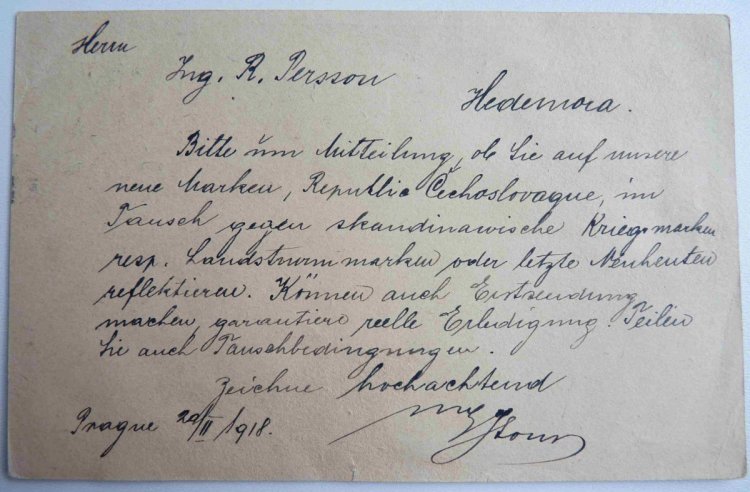 Herrn
Ing. R. Persson
Hedemora.
Bitte um Mitteilung, ob Sie auf unsere
neue Marken, Republic Čechoslovaque, im
Tausch gegen skandinawische Kriegsmarken
resp. Landsturmmarken oder letzte Neuheuten
reflektieren. Können auch Erstsendung
machen, garantiere reelle Erledigung. Teilen
Sie auch Tauschbedingungen.
Zeichne hochachtend
Prague 29/II 1918.